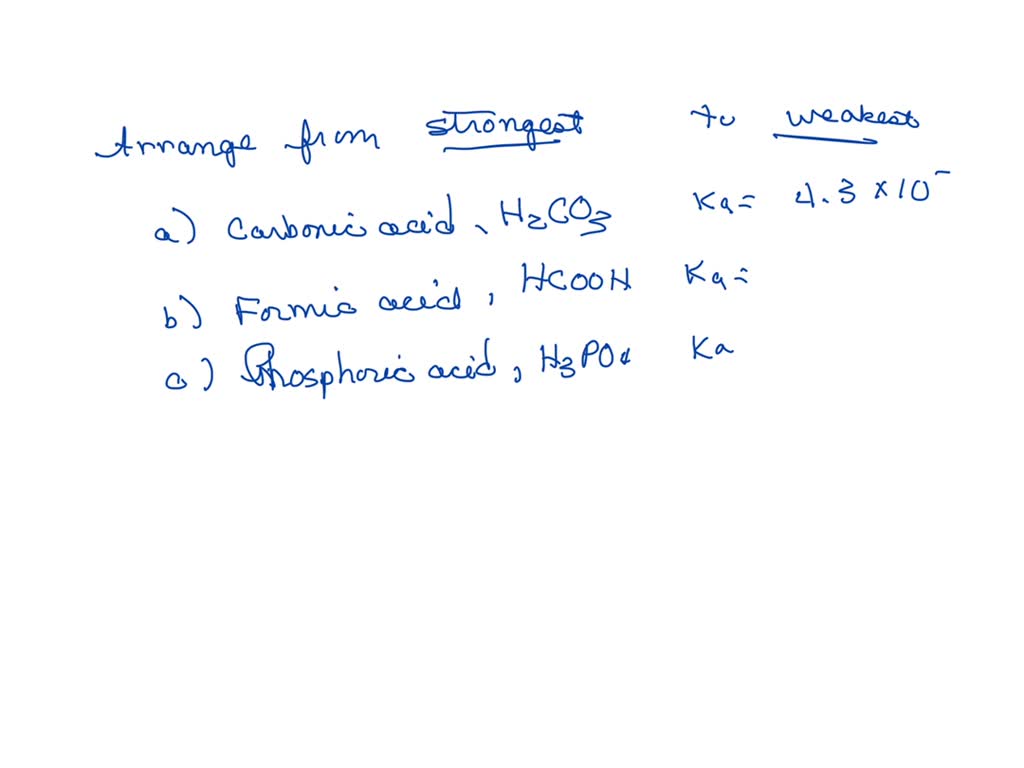 Arrange from strongest to weakest
a) Carbonic acid, H₂CO₃ Ka= 4.3 ×10⁻
b) Formic acid, HCOOH Ka=
c) Phosphoric acid, H₃PO₄ Ka